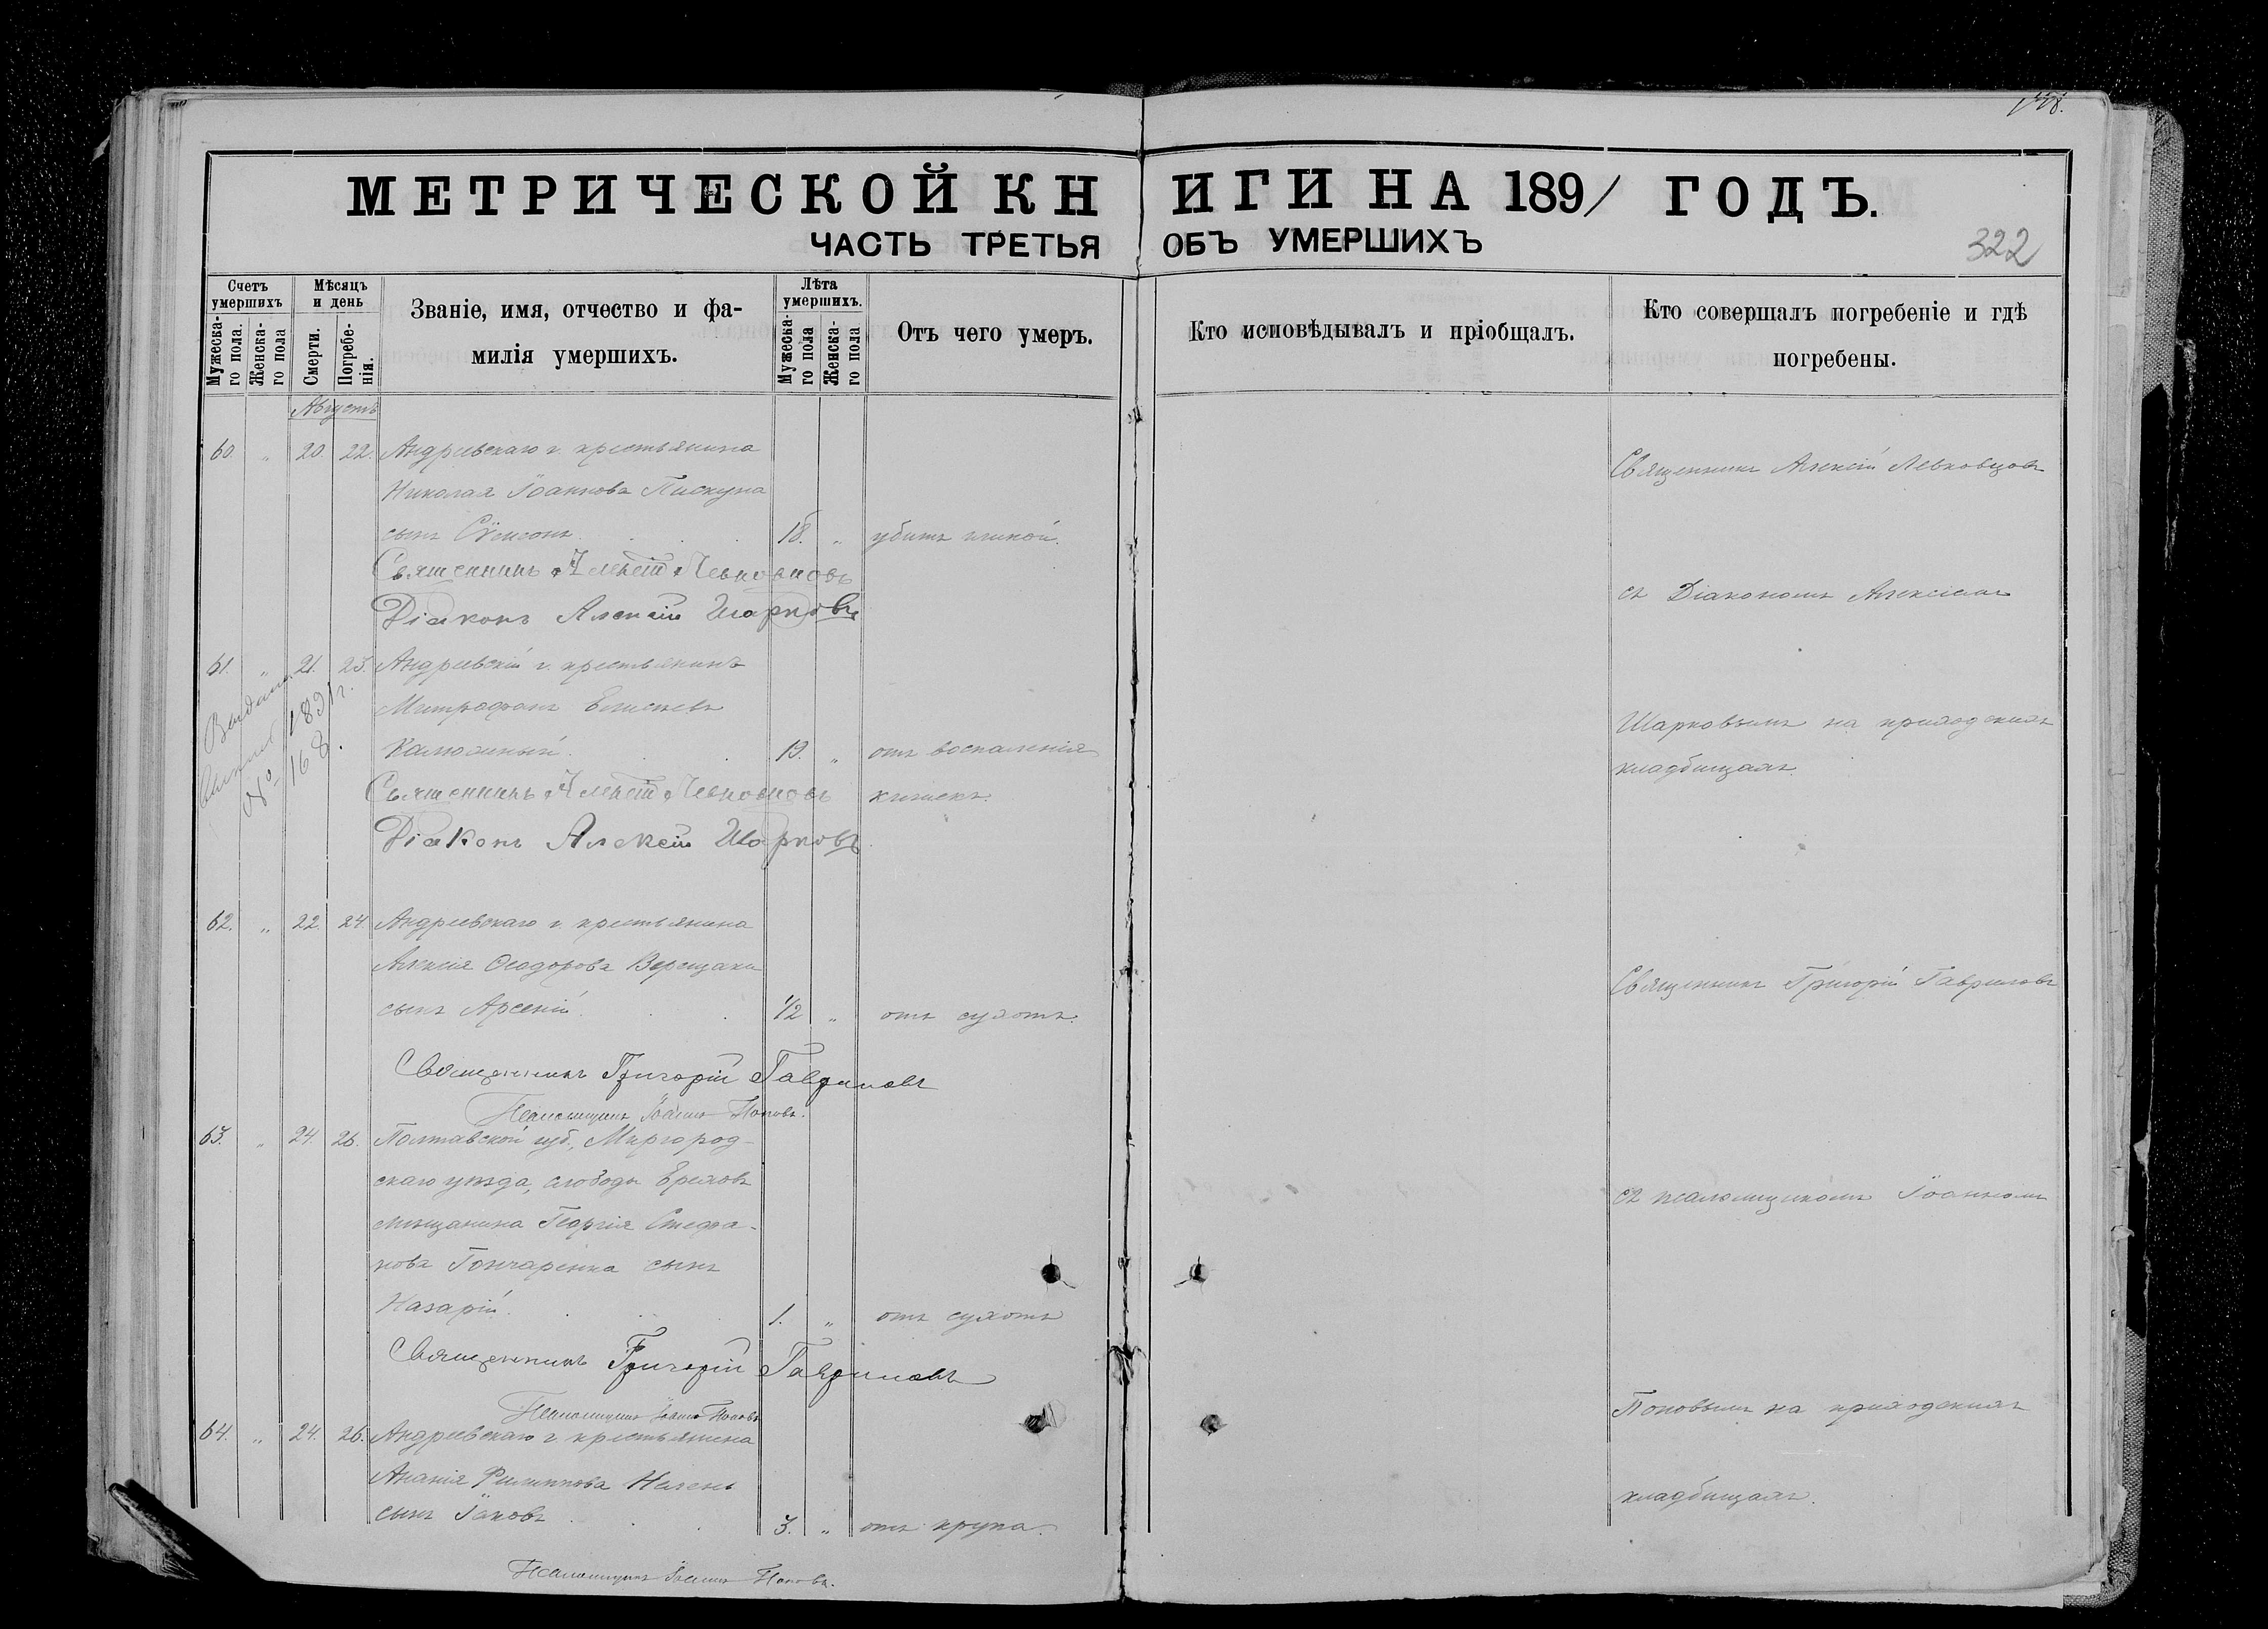 МЕТРИЧЕСКОЙ КНИГИ НА 1891 ГОДЪ.
ЧАСТЬ ТРЕТЬЯ ОБЪ УМЕРШИХЪ
322
Счетъ умершихъ
Мужеска-го пола.
Женска-го пола
Мѣсяцъ и день
Смерти.
Погребе-нія.
Званіе, имя, отчество и фа-
милія умершихъ.
Лѣта умершихъ.
Мужеска-го пола
Женска-го пола
Отъ чего умеръ.
Кто исповѣдывалъ и пріобщалъ.
Кто совершалъ погребеніе и гдѣ
погребены.
Августъ
60. „ 20. 22. Андреевскаго г. крестьянина
Николая Іоаннова Пискуна
сынъ Сѵмеонъ. 18. „ убитъ
Священникъ Алексій Левковцовъ
Діаконъ Алексій Шарковъ
61. „ 21. 23. Андреевскій г. крестьянинъ
Митрофанъ Елисеевъ
19. „ отъ воспаленія
Священникъ Алексій Левковцовъ кишекъ.
Діаконъ Алексій Шарковъ
Выдана
1891 г.
№ 168.
62. „ 22. 24. Андреевскаго г. крестьянина
Алексія Ѳеодорова Верещаки
сынъ Арсеній. 1/2 „ отъ сухотъ.
Священникъ Григорій Гавриловъ
Псаломщикъ Іоаннъ Поповъ.
63. „ 24. 26. Полтавской губ., Миргород-
скаго уѣзда, слободы
мѣщанина Георгія Стефа-
нова Гончаренка сынъ
Назарій. 1. „ отъ сухотъ
Священникъ Григорій Гавриловъ
Псаломщикъ Іоаннъ Поповъ
64. „ 24. 26. Андреевскаго г. крестьянина
Ананія Филиппова
сынъ Іаковъ 3. „ отъ крупа.
Псаломщикъ Іоаннъ Поповъ.
Священникъ Алексій Левковцовъ
съ Діакономъ Алексіемъ
Шарковымъ на приходскихъ
кладбищахъ.
Священникъ Григорій Гавриловъ
съ псаломщикомъ Іоанномъ
Поповымъ на приходскихъ
кладбищахъ.